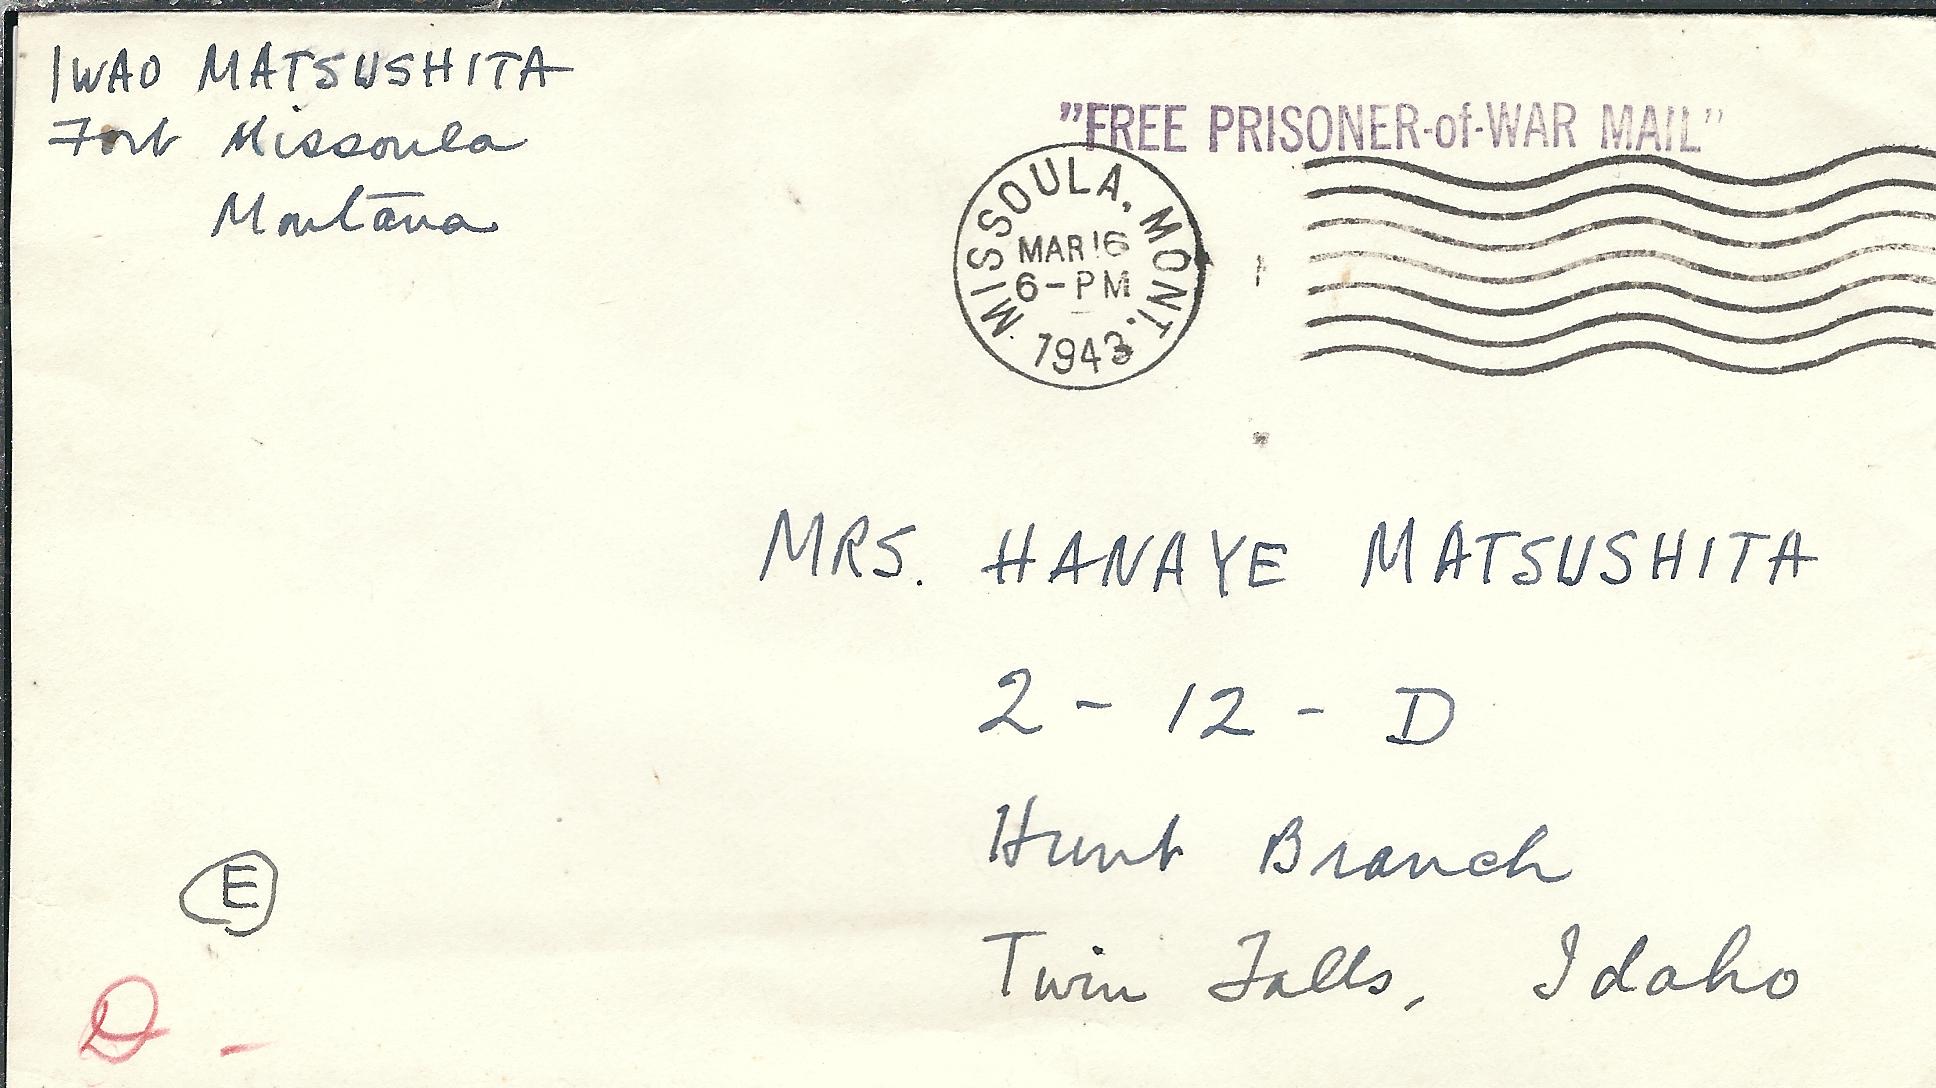 IWAO MATSUSHITA
Fort Missoula
Montana
"FREE PRISONER-of-WAR MAIL"
MISSOULA, MONT.
MAR 16
6-PM
1943
MRS. HANAYE MATSUSHITA
2 - 12 - D
Hunt Branch
Twin Falls, Idaho
E
D -